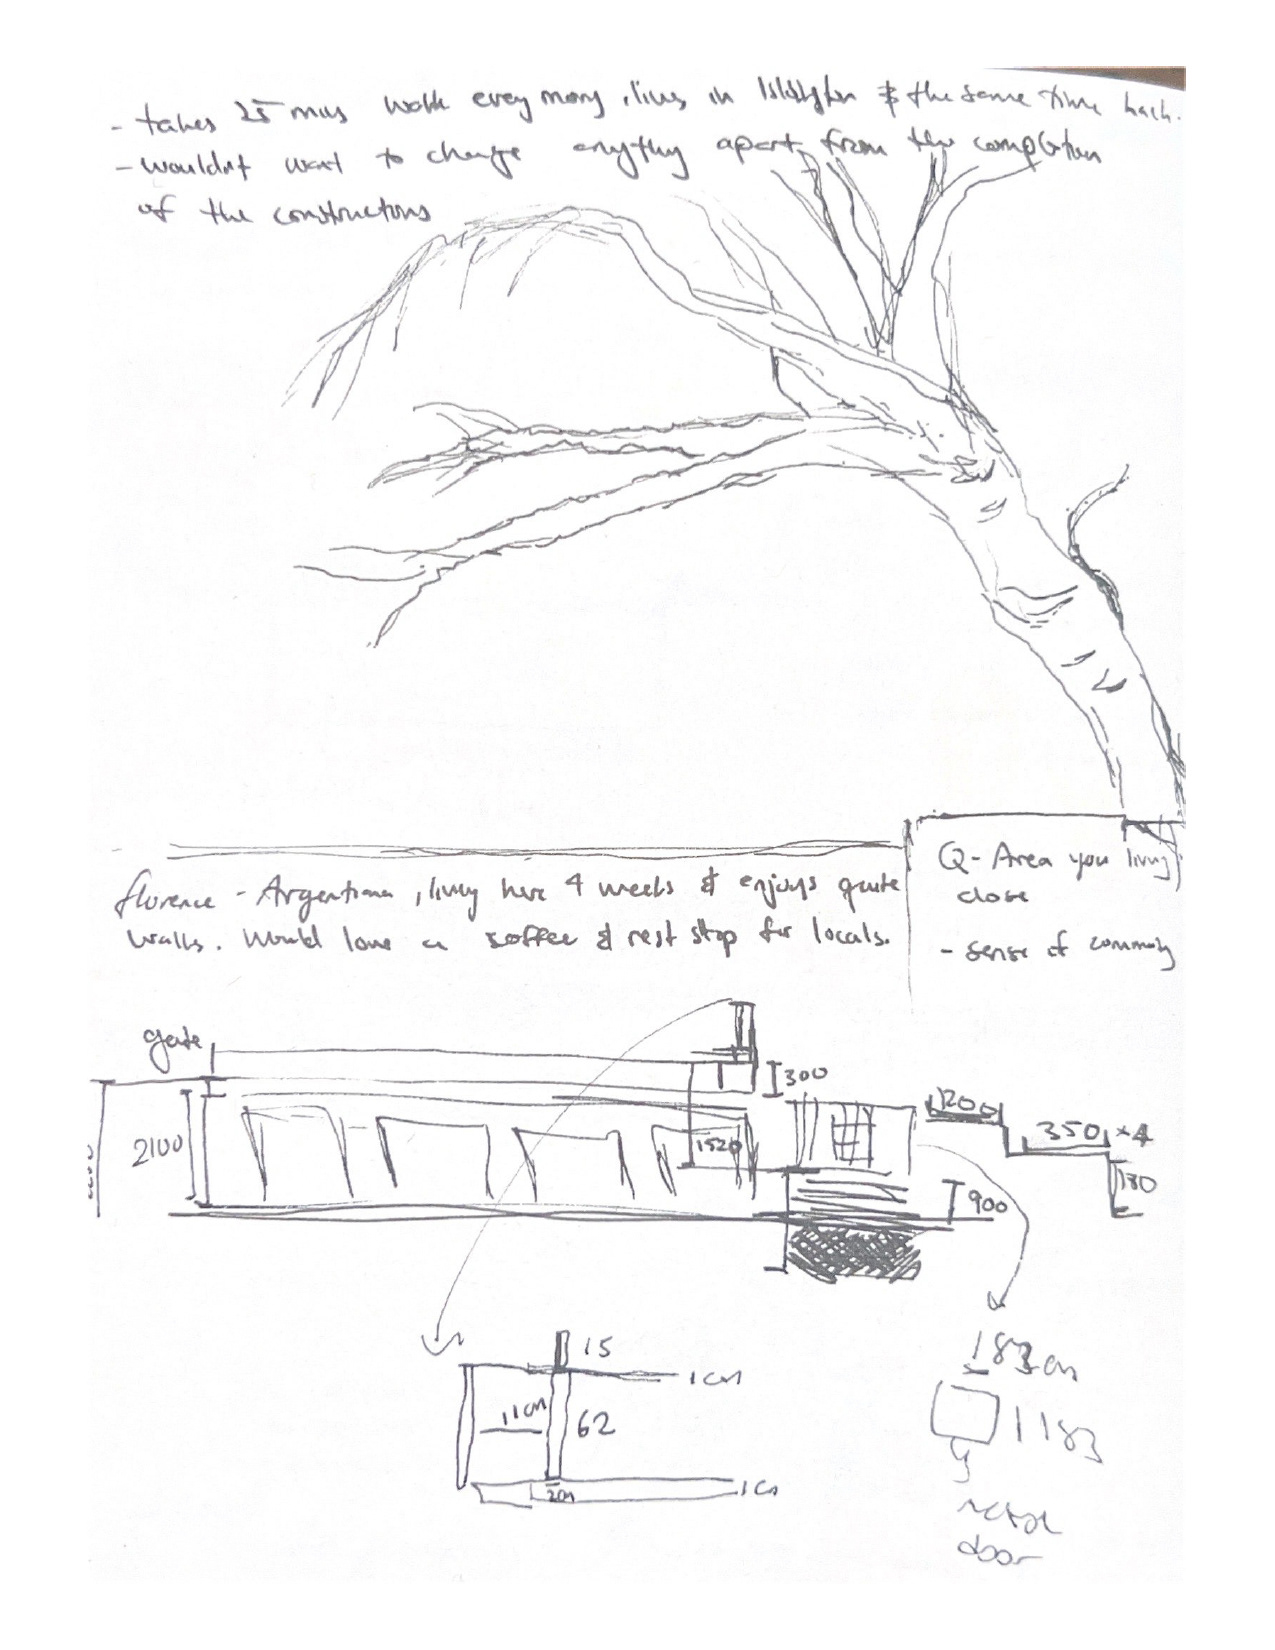 - takes 25 mins walk every morng, lives in Islington & the same time back.
- wouldn't want to change anythng apart from the completion
of the constructions
florence - Argentina, living here 4 weeks & enjoys quite
walks. Would love a coffee & rest stop for locals.
Q - Area you living
close
- sense of community
gate
300
1200
350 x4
2100
1520
180
900
15
1cm
11cm
62
2cm
1cm
183cm
1183
metal
door